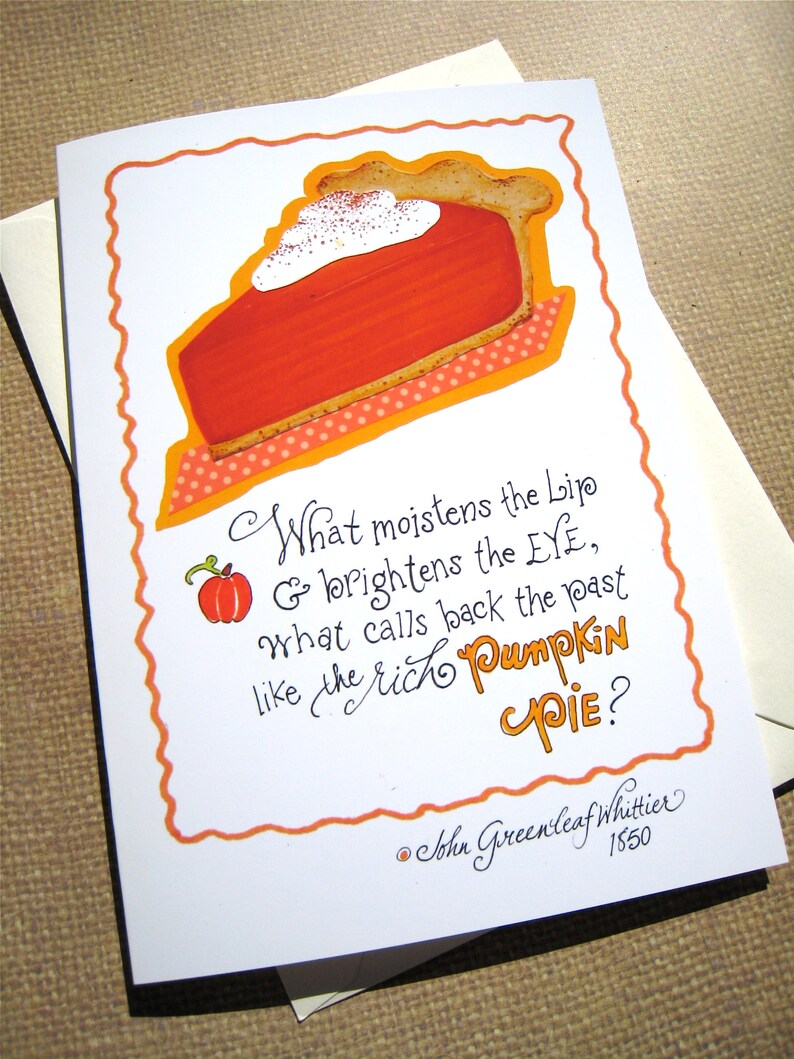 What moistens the Lip
& brightens the EYE,
what calls back the past
like the rich pumpkin
PIE?
John Greenleaf Whittier
1850